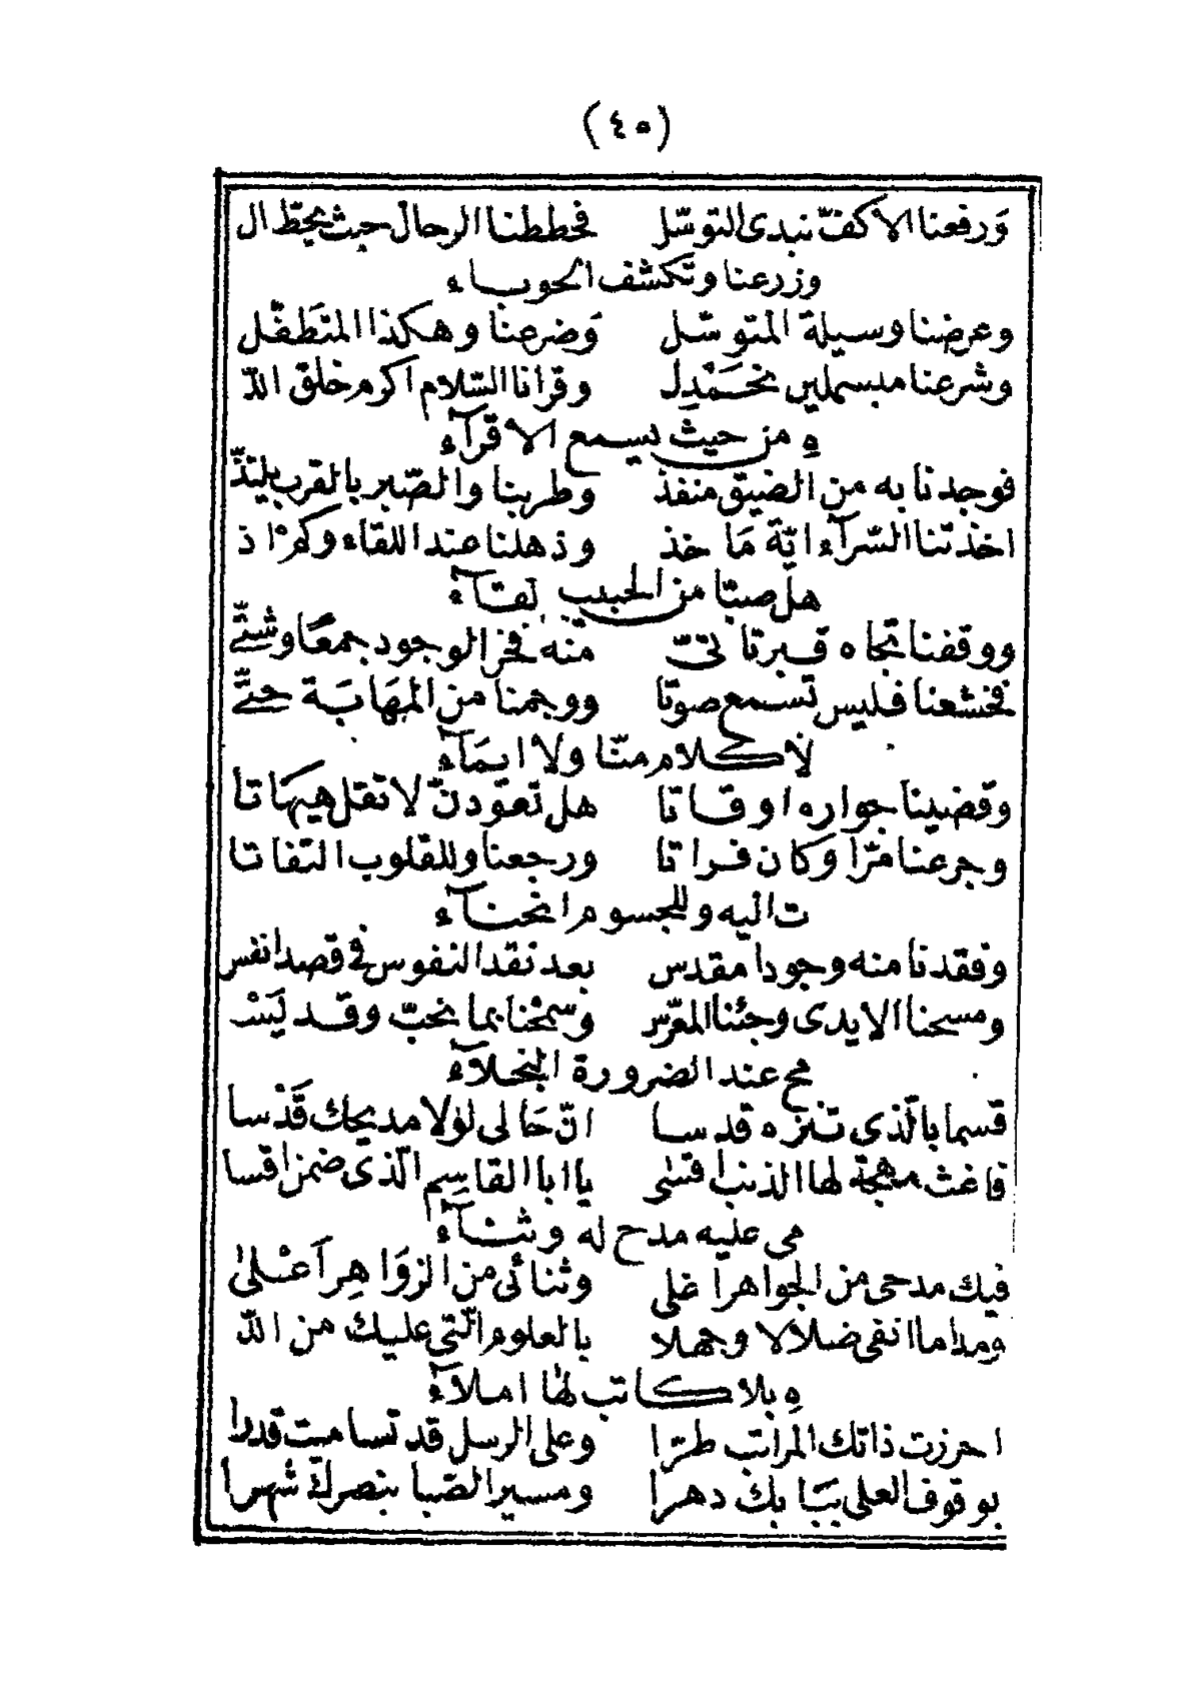 (٤٥)
وَرفعنا الاكفّ نبدى التوسّل فحططنا الرحال حيث يحطّ ال
وزرعنا وتكشف الحوباء
وعرضنا وسيلة المتوسّل وَضرعنا وهكذا المتَطفّل
وشرعنا مبسملين نحَمْدِل وقرانا السّلام اكرم خلق اللّ
هِ من حيث يسمع الأقرآء
فوجدنا به من الضيق منفذ وطربنا والصّبر بالقرب يلتذّ
اخذتنا السّرآء ايّة مَا خذ وذهلنا عند اللقاء وكمْ اذ
هل صبّا من الحبيب لقآء
ووقفنا تجاه قبر تاتىّ منّه فخر الوجود جمعًا وشتّى
فخشعنا فليس تسمع صوتا ووجمنا من المهَابَة حتّى
لا كلام منّا ولا ايمَآء
وقضينا جواره اوقاتا هل تعوّدنّ لا تقل هيهَاتا
وجرعنا مرّا وكان فراتا ورجعنا وللقلوب التفاتا
ت اليه وللجسوم انحنآء
وفقدنا منه وجودا مقدس بعد نقد النفوس فى قصد انفس
ومسحنا الايدى وجئنا المعرّس وسمحْنا بما نحبّ وقد يَسْ
مح عند الضرورة البخلآء
قسما بالّذى تنزه قدسا انّ حَالى لوْلا مديحك قَدْ سا
فاغث مهجة لها الذنب اقسى يا ابا القاسِم الّذى ضمن اقسا
مى عليه مدح له وثنآء
فيك مدحى من الجواهر اغلى وثنائى من الزوَاهِر اَعْلىٰ
ومداما انفى ضلالا وجهلا بالعلوم الّتى عليك من اللّ
هِ بلا كاتب لهَا املآء
احرزت ذاتك المراتب طرّا وعلى الرسل قد تسامت قدرا
بوقوف العلى ببَابك دهرا ومسير الصّبا بنصرك شهرا